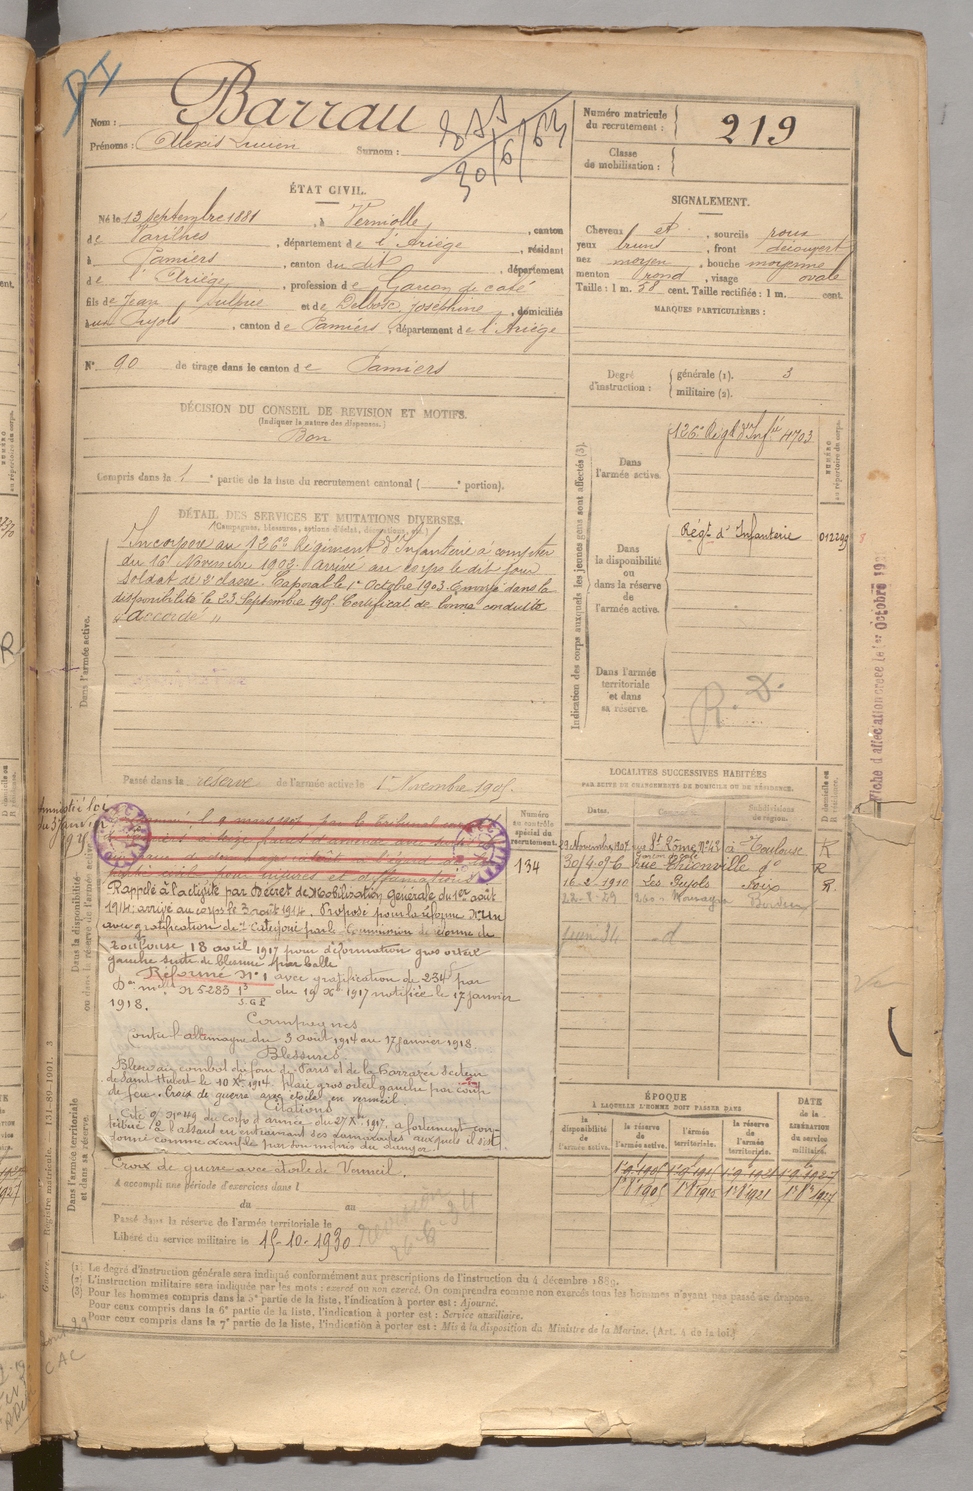 Nom : Barrau
Prénoms : Alexis Lucien Surnom :
30/6/64
Numéro matricule du recrutement : 219
Classe de mobilisation :
ÉTAT CIVIL.
Né le 13 septembre 1881, à Verniolle, canton
de Varilhes, département de l'Ariége, résidant
à Pamiers, canton du dit, département
de l'Ariége, profession de Garçon de café
fils de Jean Sulpice et de Delbosc Joséphine, domiciliés
aux Pujols, canton de Pamiers, département de l'Ariége
N° 90 de tirage dans le canton de Pamiers
SIGNALEMENT.
Cheveux et, sourcils roux
yeux bruns, front découvert
nez moyen, bouche moyenne
menton rond, visage ovale
Taille : 1 m. 58 cent. Taille rectifiée : 1 m. cent.
MARQUES PARTICULIÈRES :
Degré d'instruction : générale (1). 3
militaire (2).
DÉCISION DU CONSEIL DE REVISION ET MOTIFS.
(Indiquer la nature des dispenses.)
Bon
Compris dans la 1e partie de la liste du recrutement cantonal ( e portion).
DÉTAIL DES SERVICES ET MUTATIONS DIVERSES.
(Campagnes, blessures, actions d'éclat, décorations, etc.)
Dans l'armée active.
Incorporé au 126e Régiment d'Infanterie à compter
du 16 Novembre 1902. Arrivé au corps le dit jour
Soldat de 2e classe. Caporal le 1er Octobre 1903. Envoyé dans la
disponibilité le 23 Septembre 1905. Certificat de bonne conduite
"Accordé"
Passé dans la réserve de l'armée active le 1er Novembre 1905.
Indication des corps auxquels les jeunes gens sont affectés (3).
NUMÉRO au répertoire du corps.
Dans l'armée active.
126e Régt d'Infie 4703
Dans la disponibilité ou dans la réserve de l'armée active.
Régt d'Infanterie 012295
Dans l'armée territoriale et dans sa réserve.
R. D.
Fiche d'affectation créée le 1er Octobre
LOCALITÉS SUCCESSIVES HABITÉES
PAR SUITE DE CHANGEMENTS DE DOMICILE OU DE RÉSIDENCE.
Dates. Communes. Subdivisions de région. D domicile ou R résidence.
29 Novembre 1905 rue St Rome N° 42 à Toulouse R
16-2-1910 Les Pujols Foix R.
Bordeaux
Juin 34 -d
Numéro au contrôle spécial du recrutement.
134
Dans la disponibilité ou dans la réserve de l'armée active.
Amnistié loi du 3 janvier
Rappelé à l'activité par Décret de Mobilisation Générale du 1er août
1914; arrivé au corps le 3 août 1914. Proposé pour la réforme N° Un
avec gratification de catégorie par la Commission de réforme de
Toulouse 18 avril 1917 pour déformation gros orteil
gauche suite de blessure par balle
Réformé N° 1 avec gratification de 234f par
Don mlle N 5283 du 19 Xbre 1917 notifiée le 17 janvier
1918.
Campagnes
Contre l'Allemagne du 3 août 1914 au 17 janvier 1918
Blessures
Blessé au combat du four de Paris et de la Harazée Secteur
de Saint Hubert le 10 Xbre 1914. plaie gros orteil gauche par coup
de feu. Croix de guerre avec étoile en vermeil
Citations
Cité O/ N° 49 du corps d'armée du 27 Xbre 1917. a fortement con-
tribué à l'assaut en entrainant ses camarades auxquels il s'est
donné comme exemple par son mépris du danger.
Dans l'armée territoriale et dans sa réserve.
Croix de guerre avec étoile de Vermeil.
A accompli une période d'exercices dans l
du au
Passé dans la réserve de l'armée territoriale le
Libéré du service militaire le 15-10-1930
ÉPOQUE
À LAQUELLE L'HOMME DOIT PASSER DANS
la disponibilité de l'armée active. la réserve de l'armée active. l'armée territoriale. la réserve de l'armée territoriale. DATE de la LIBÉRATION du service militaire.
1er 9bre 1905 1er 9bre 1915 1er 9bre 1921 1er 9bre 1927
1er 8bre 1905 1er 8bre 1921 1er 8bre 1927
(1) Le degré d'instruction générale sera indiqué conformément aux prescriptions de l'instruction du 4 décembre 1889.
(2) L'instruction militaire sera indiquée par les mots : exercé ou non exercé. On comprendra comme non exercés tous les hommes n'ayant pas passé au drapeau.
(3) Pour les hommes compris dans la 5e partie de la liste, l'indication à porter est : Ajourné.
Pour ceux compris dans la 6e partie de la liste, l'indication à porter est : Service auxiliaire.
Pour ceux compris dans la 7e partie de la liste, l'indication à porter est : Mis à la disposition du Ministre de la Marine. (Art. 4 de la loi.)
Guerre. — Registre matricule. 131-89-1901. 3
CAC